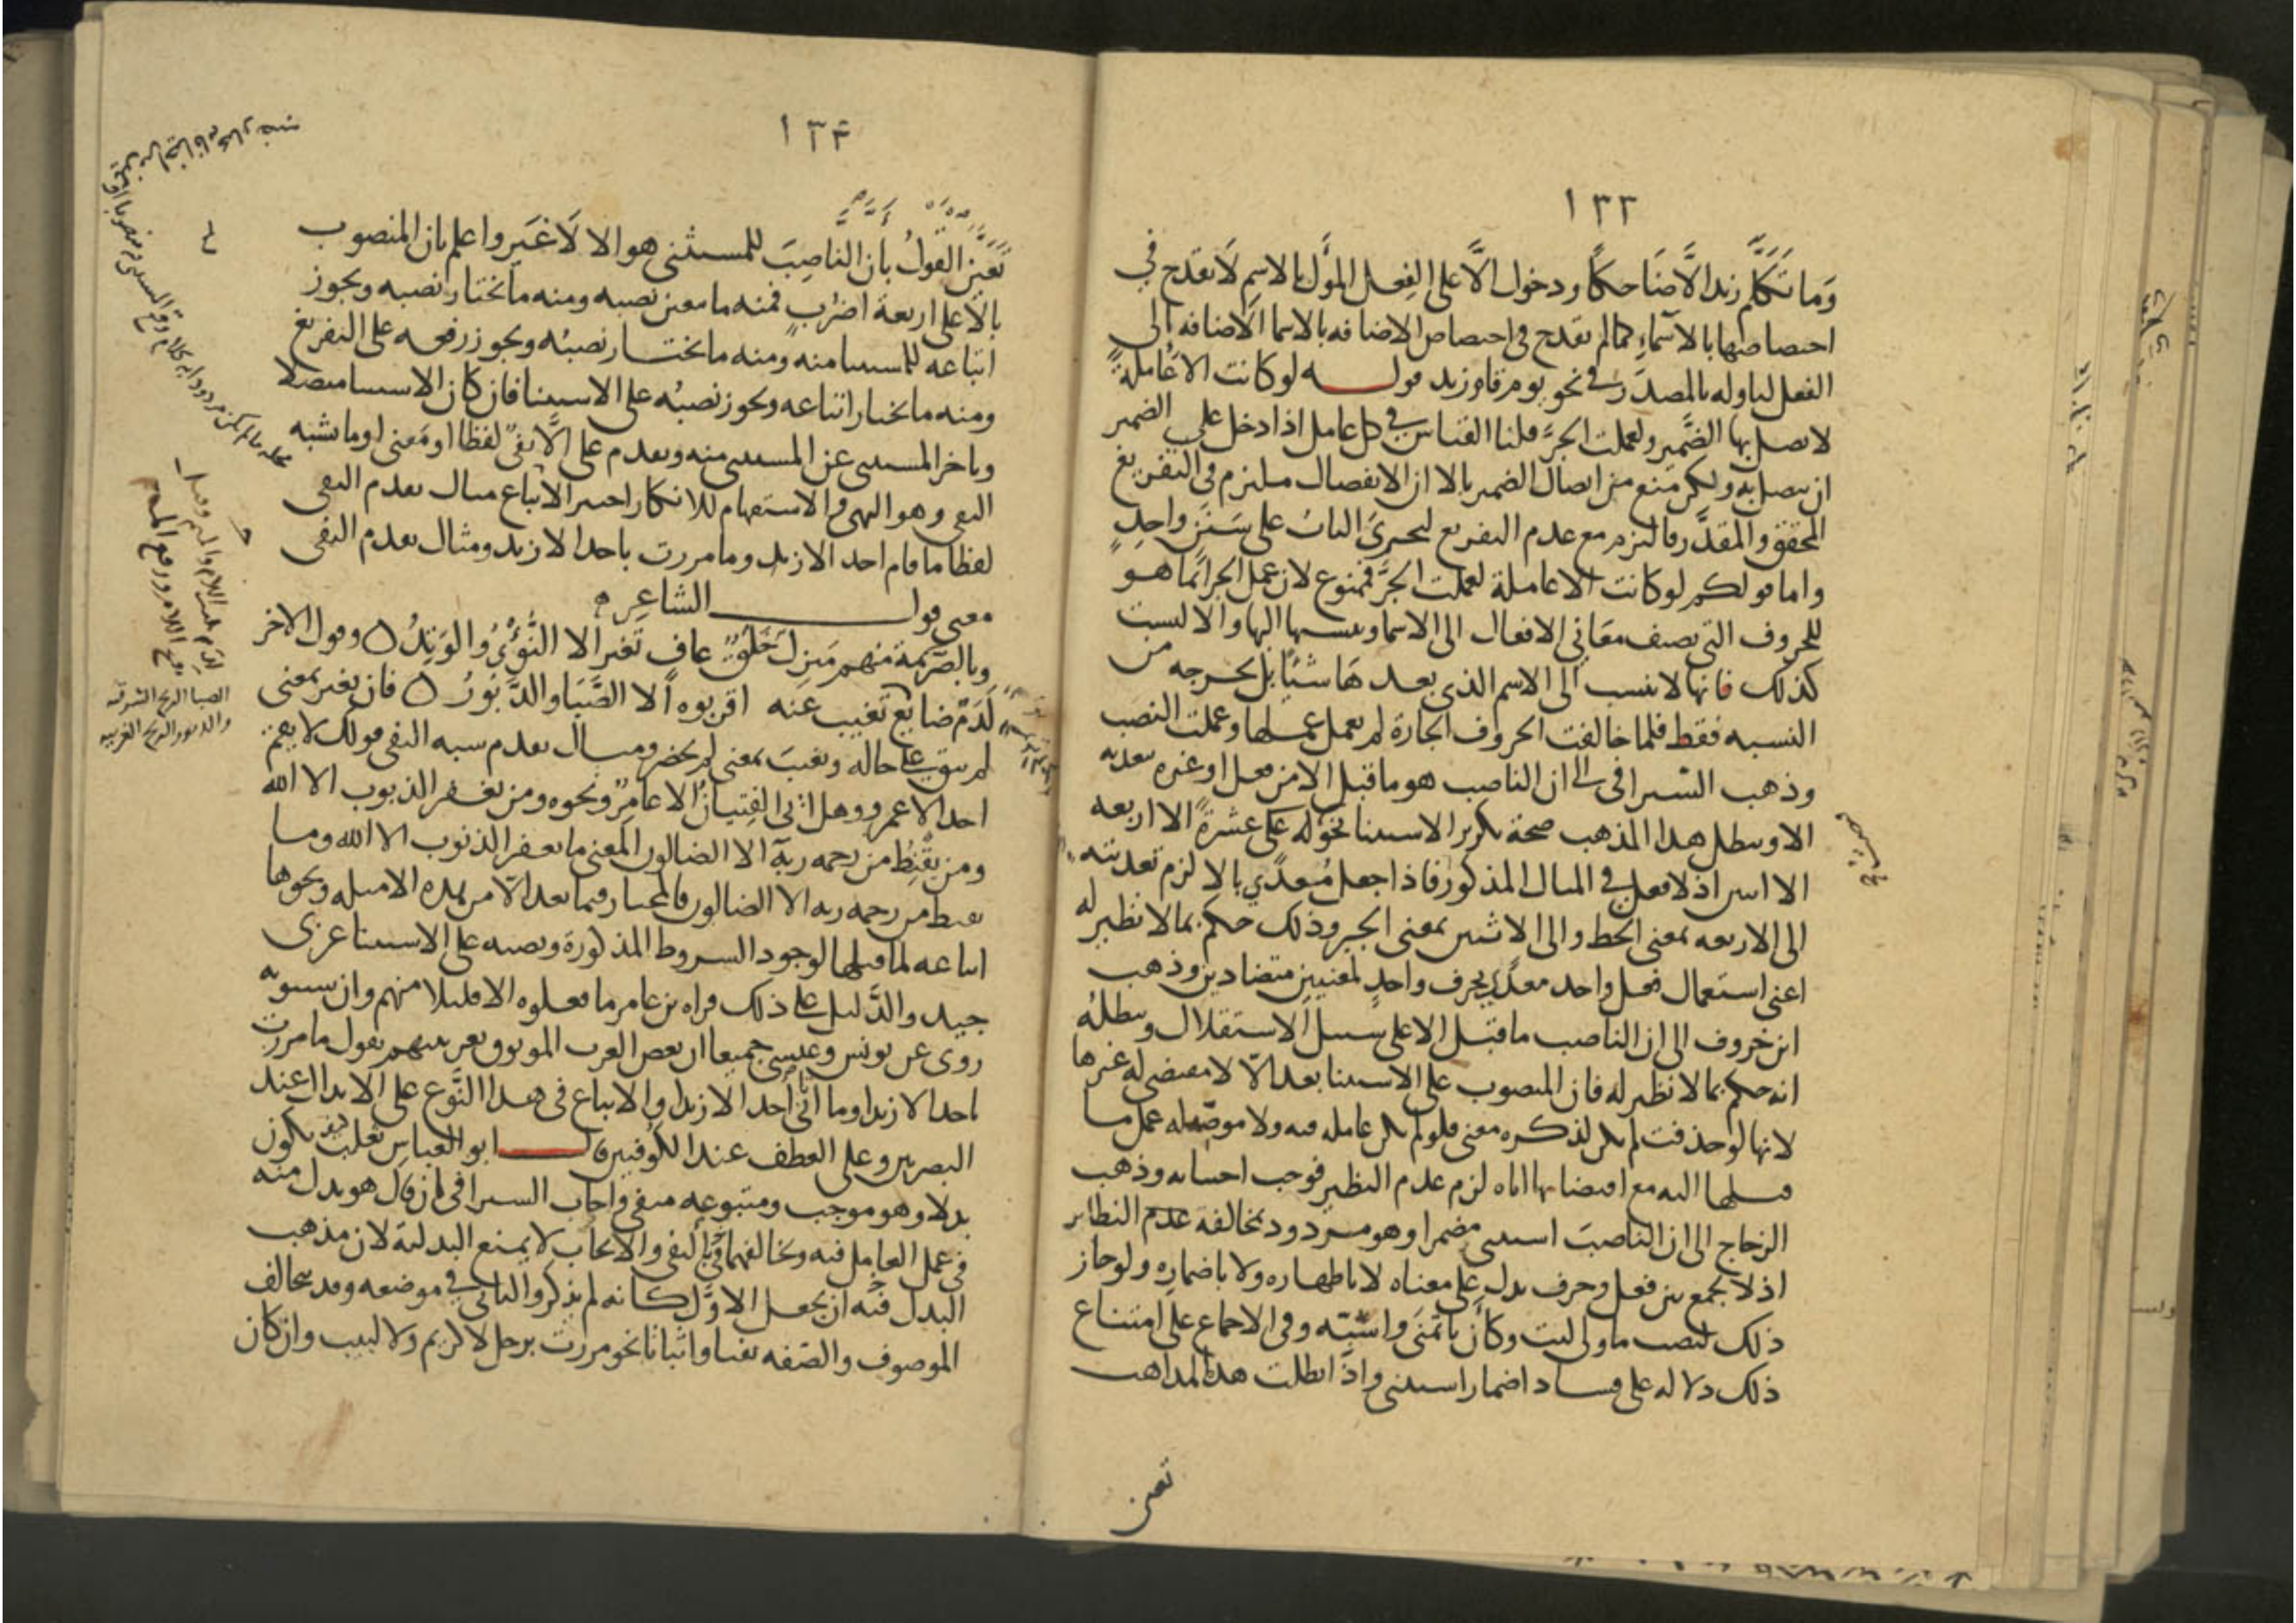 ١٣٣
وَما تَكَلَّم زيد الَّا ضَاحكًا ودخول الَّا على الفِعل المؤَل بالاسمِ لَا يقدح في
احتصاصها بالاسَماءِ كما لم يقدح في احتصاص الاضافه بالاسما الاضافه الى
الفعل لتاوله بالمصدَر في نحو يوم قام زيد قولــــه لو كانت الا عَاملةً
لاتصل بها الضَّمير ولعملت الجرَّ قلنا القياس في كل عامل اذا دخل على الضمير
ان يتصل به ولكن مَنع من اتصال الضمير بالا ان الانفصال ملتزم في التفريغ
المحقق والمقدَّر فالتزم مع عدم التفريع ليجريَ البابُ على سَنَنٍ واحدٍ
واما قولكم لو كانت الا عاملة لعملت الجرَّ فممنوع لان عمل الجر انّما هــو
للحروف التى تضيف معَاني الافعال الى الاسما وتنسبها اليها والا ليست
كذلك فانها لا تنسب الى الاسم الذى بعدهَا شيئًا بل تخرجه من
النسبه فقط فلما خالفت الحروف الجارة لم تعمل عملها وعملت النصَب
وذهب السّيرافى الى ان الناصب هو ما قبل الا من فعل او غيره بتعديه
الا ويبطل هذا المذهب صحة تكرير الاستثنا نحو له على عشرةً الا اربعه
الا اثنين اذ لا فعل في المثال المذكور فاذا جعل مُتعدّي بالا لزم تعديته
الى الاربعه بمعنى الحط والى الاثنين بمعنى الجبر وذلك حكم بما لا نظير له
اعنى استعمال فعل واحد معدّى بحرف واحدٍ لمعنيين متضادين وذهب
ابن خروف الى ان الناصب ما قبل الا على سبيل الاستقلال ويبطلهُ
انه حكم بما لا نظير له فان المنصوب على الاستثنا بعد الّا لا مقتضى له غيرها
لانها لو حذفت لم يكن لذكره معنى فلو لم تكن عامله فيه ولا موصّله عمل ما
قبلها اليه مع اقتضايها اياه لزم عدم النظير فوجب اجتنابه وذهب
الزجاج الى ان الناصبَ استثنى مضمرا وهو مردود بمخالفة عدم النظائر
اذ لا يجمع بين فعل وحرف يدل على معناه لا باظهاره ولا باضمارِه ولو جاز
ذلك لنصب ما ولى ليت وكأن باتمنَى واشبّه وفى الاجماع على امتناع
ذلك دلاله على فساد اضمار استثنى واذا ابطلت هذه المذاهب
تعين
١٣٤
تَعيَّن القولُ بأن النَّاصِبَ للمستثنى هو الا لَا غَير واعلم بان المنصوب
بالّا على اربعة اضرُبٍ فمنه ما معين نصبه ومنه ما يختار نصبه ويجوز
اتباعه للمستثنا منه ومنه ما يختــار نصبُه ويجوز رفعه على التفريغ
ومنه ما يختار اتباعه ويجوز نصبُه على الاستثنا فان كان الاستثنا متصلا
وتاخر المستثنى عن المستثنى منه وتقدم على الَّا نفىٌ لفظا او مَعنى او ما يشبه
النفى وهو النهى والاستفهام للانكار اختير الاتباع مثال تقدم النفى
لفظا ما قام احد الا زيد وما مررت باحد الا زيد ومثال تقدم النفى
معنى قولـــــ الشاعِر
وبالصَّريمة منهم مَنزلٌ خَلَقٌ عافٍ تَغير الا النُّؤْىُ والوَتِدُ ٥ وقول الاخر
لَدَمٌ ضايعٌ تَغيب عنه اقربوه الا الصَّبَا والدَّبُورُ ٥ فان تغير بمعنى
لم يبق على حاله وتغيبَ بمعنى لم يحضر ومثال تقدم شبه النفى قولك لا يقم
احد الا عمرو وهل اتى الفِتيانُ الا عامِرٌ ونحوه ومن يغفر الذنوب الا الله
ومن يَقْنِطُ من رحمه ربّه الا الضالون المعنى ما يغفر الذنوب الا الله وما
يقنط من رحمه ربه الا الضالون فالمختار فيما بعد الّا من هذه الامثله ونحوها
اتباعه لما قبلها لوجود الشروط المذكورة ونصبه على الاستثنا عربى
جيد والدَّليل على ذلك قراه بن عامر ما فعلوه الا قليلا منهم وان سيبويه
روى عن يونس وعيسى جميعا ان بعض العرب الموثوق بعربيتهم يقول ما مررت
باحد الا زيدا وما اتانى أحد الا زيدا والاتباع فى هذا النَّوع على الابدال عند
البصريين وعلى العطف عند الكوفيين قالــــ ابو العباس ثعلب كيف يكون
بدلا وهو موجب ومتبوعه منفى واجاب السيرافى بان قال هو بدل منه
فى عمل العامل فيه وتخالفهما في النفى والايجاب لا يمنع البدلية لان مذهب
البدل فيه ان يجعل الاوَّل كانه لم يذكر والثانى في موضعه وقد يتخالف
الموصوف والصّفه نفيا واثباتا نحو مررت برجل لا كريم ولا لبيب وان كان
الصبا الريح الشرقيه
والدبور الريح الغربيه